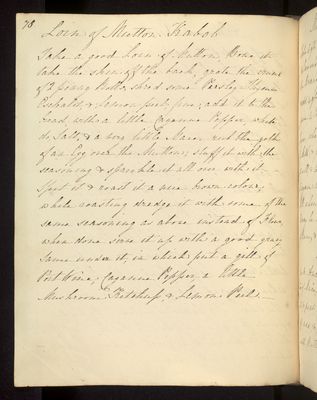 78
Loin of Mutton Kabob
Take a good Loin of Mutton, Bone it
take the skin off the back, grate the crumb
of 2 penny Rolls, shred some Parsley Thyme
Eschalot, & Lemon peel, fine; add it to the
bread, with a little Cayanne Pepper, white
do, Salt, & a very little Mace, rub the yolk
of an Egg over the Mutton; stuff it with the
seasoning & sprinkle it all over with it,
Spit it & roast it a nice brown colour,
while roasting dredge it with some of the
same seasoning as above instead of Flour,
when done serve it up with a good gravy
Sauce under it, in which put a gill of
Port Wine, Cayanne Pepper, a little
Mushroom Ketchup & Lemon Peel.